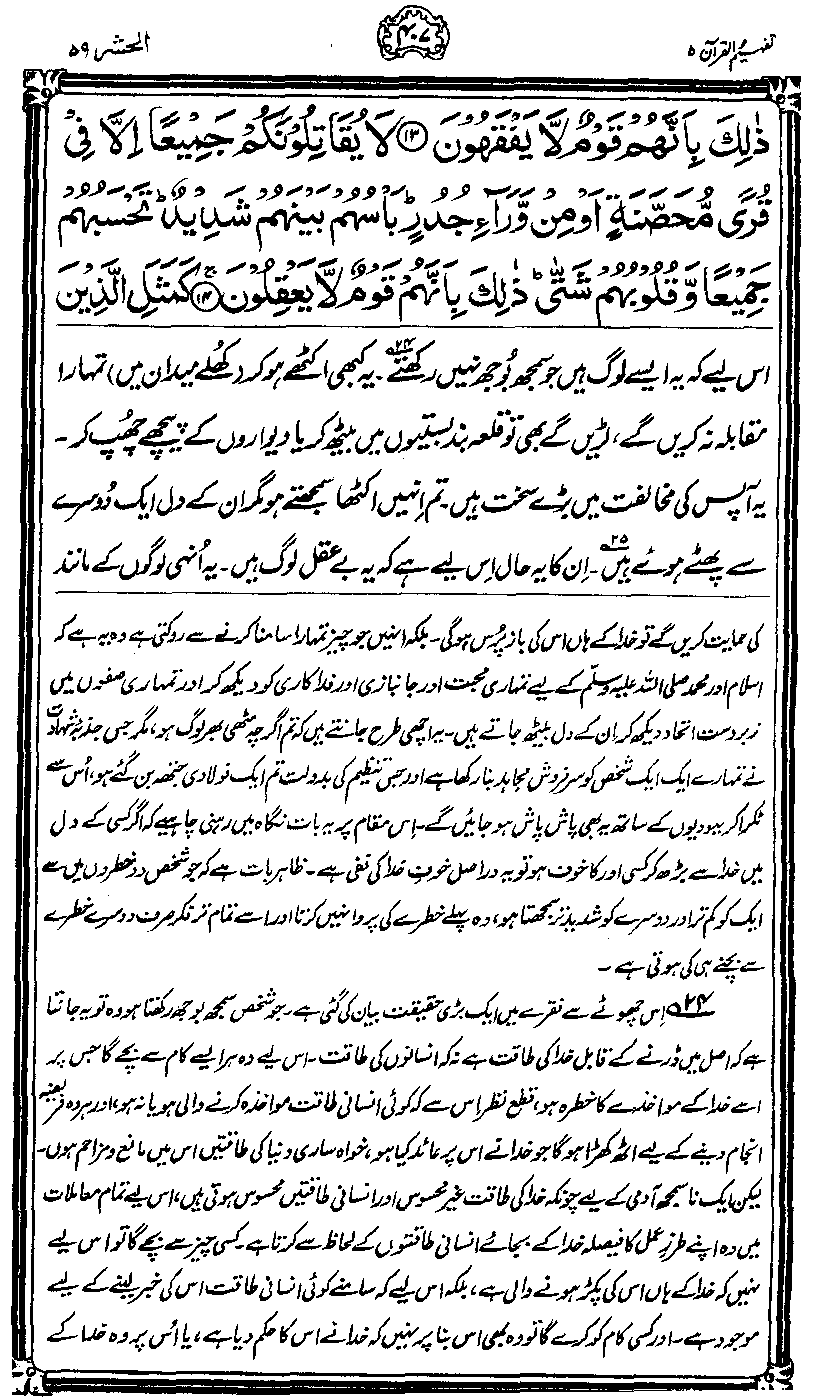 تفہیم القرآن ۵
۴۰۷
الحشر ۵۹
ذٰلِكَ بِاَنَّهُمْ قَوْمٌ لَّا يَفْقَهُوْنَ ﴿۱۳﴾ لَا يُقَاتِلُوْنَكُمْ جَمِيْعًا اِلَّا فِيْ
قُرًى مُّحَصَّنَةٍ اَوْ مِنْ وَّرَآءِ جُدُرٍ ؕ بَاْسُهُمْ بَيْنَهُمْ شَدِيْدٌ ؕ تَحْسَبُهُمْ
جَمِيْعًا وَّقُلُوْبُهُمْ شَتّٰى ؕ ذٰلِكَ بِاَنَّهُمْ قَوْمٌ لَّا يَعْقِلُوْنَ ﴿۱۴﴾ۚ كَمَثَلِ الَّذِيْنَ
اس لیے کہ یہ ایسے لوگ ہیں جو سمجھ بُوجھ نہیں رکھتے۲۴۔ یہ کبھی اکٹھے ہو کر (کھلے میدان میں) تمہارا
مقابلہ نہ کریں گے، لڑیں گے بھی تو قلعہ بند بستیوں میں بیٹھ کر یا دیواروں کے پیچھے چھُپ کر۔
یہ آپس کی مخالفت میں بڑے سخت ہیں۔ تم اِنہیں اکٹھا سمجھتے ہو مگر ان کے دل ایک دُوسرے
سے پھٹے ہوئے ہیں۲۵۔ اِن کا یہ حال اِس لیے ہے کہ یہ بے عقل لوگ ہیں۔ یہ اُنہی لوگوں کے مانند
کی حمایت کریں گے تو خدا کے ہاں اس کی باز پُرس ہوگی۔ بلکہ انہیں جو چیز تمہارا سامنا کرنے سے روکتی ہے وہ یہ ہے کہ
اسلام اور محمد صلی اللہ علیہ وسلم کے لیے تمہاری محبت اور جانبازی اور فداکاری کو دیکھ کر اور تمہاری صفوں میں
زبردست اتحاد دیکھ کر ان کے دل بیٹھ جاتے ہیں۔ یہ اچھی طرح جانتے ہیں کہ تم اگرچہ مٹھی بھر لوگ ہو، مگر جس جذبۂ شہادت
نے تمہارے ایک ایک شخص کو سرفروش مجاہد بنا رکھا ہے اور جس تنظیم کی بدولت تم ایک فولادی جتھہ بن گئے ہو، اُس سے
ٹکرا کر یہودیوں کے ساتھ یہ بھی پاش پاش ہو جائیں گے۔ اِس مقام پر یہ بات نگاہ میں رہنی چاہیے کہ اگر کسی کے دل
میں خدا سے بڑھ کر کسی اور کا خوف ہو تو یہ دراصل خوفِ خدا کی نفی ہے۔ ظاہر بات ہے کہ جو شخص دو خطروں میں سے
ایک کو کم تر اور دوسرے کو شدید تر سمجھتا ہو، وہ پہلے خطرے کی پروا نہیں کرتا اور اسے تمام تر فکر صرف دوسرے خطرے
سے بچنے ہی کی ہوتی ہے۔
۲۴ اِس چھوٹے سے فقرے میں ایک بڑی حقیقت بیان کی گئی ہے۔ جو شخص سمجھ بوجھ رکھتا ہو وہ تو یہ جانتا
ہے کہ اصل میں ڈرنے کے قابل خدا کی طاقت ہے نہ کہ انسانوں کی طاقت۔ اس لیے وہ ہر ایسے کام سے بچے گا جس پر
اسے خدا کے مواخذے کا خطرہ ہو، قطع نظر اِس سے کہ کوئی انسانی طاقت مواخذہ کرنے والی ہو یا نہ ہو، اور ہر وہ فریضہ
انجام دینے کے لیے اٹھ کھڑا ہوگا جو خدا نے اس پر عائد کیا ہو، خواہ ساری دنیا کی طاقتیں اس میں مانع و مزاحم ہوں۔
لیکن ایک ناسمجھ آدمی کے لیے چونکہ خدا کی طاقت غیر محسوس اور انسانی طاقتیں محسوس ہوتی ہیں، اس لیے تمام معاملات
میں وہ اپنے طرزِ عمل کا فیصلہ خدا کے بجائے انسانی طاقتوں کے لحاظ سے کرتا ہے۔ کسی چیز سے بچے گا تو اس لیے
نہیں کہ خدا کے ہاں اس کی پکڑ ہونے والی ہے، بلکہ اس لیے کہ سامنے کوئی انسانی طاقت اس کی خبر لینے کے لیے
موجود ہے۔ اور کسی کام کو کرے گا تو وہ بھی اس بنا پر نہیں کہ خدا نے اس کا حکم دیا ہے، یا اُس پر وہ خدا کے